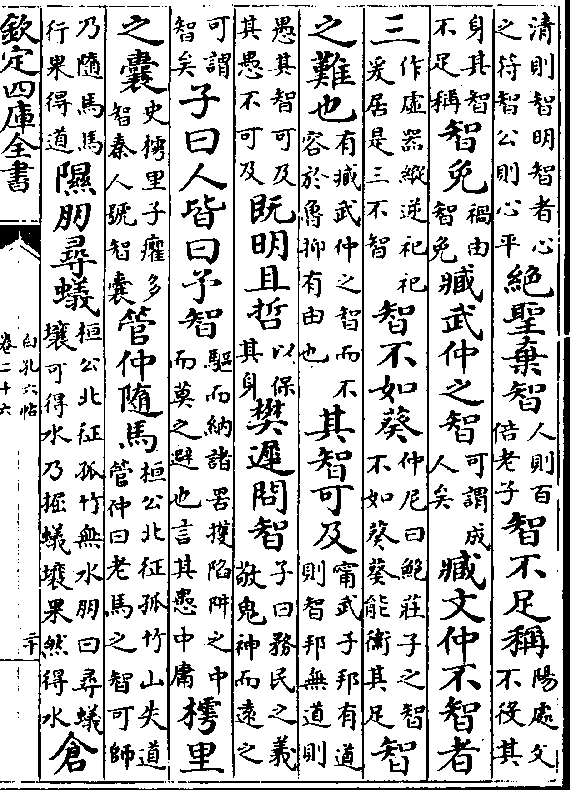 清則智明智者心之符智公則心平絕聖棄智人則百倍老子智不足稱陽處父不没其
身其智不足稱智免禍由智免臧武仲之智可謂成人矣臧文仲不智者
三作虛器縱逆祀祀爰居是三不智智不如葵仲尼曰鮑莊子之智不如葵葵能衛其足智
之難也有臧武仲之智而不容於魯抑有由也其智可及甯武子邦有道則智邦無道則
愚其智可及其愚不可及既明且哲以保其身樊遲問智子曰務民之義敬鬼神而遠之
可謂智矣子曰人皆曰予智驅而納諸罟擭陷阱之中而莫之避也言其愚中庸樗里
之囊史樗里子癯多智秦人號智囊管仲隨馬桓公北征孤竹山失道管仲曰老馬之智可師
乃隨馬馬行果得道隰朋尋蟻桓公北征孤竹無水朋曰尋蟻壤可得水乃掘蟻壤果然得水倉
欽定四庫全書
白孔六帖
卷二十六
二十